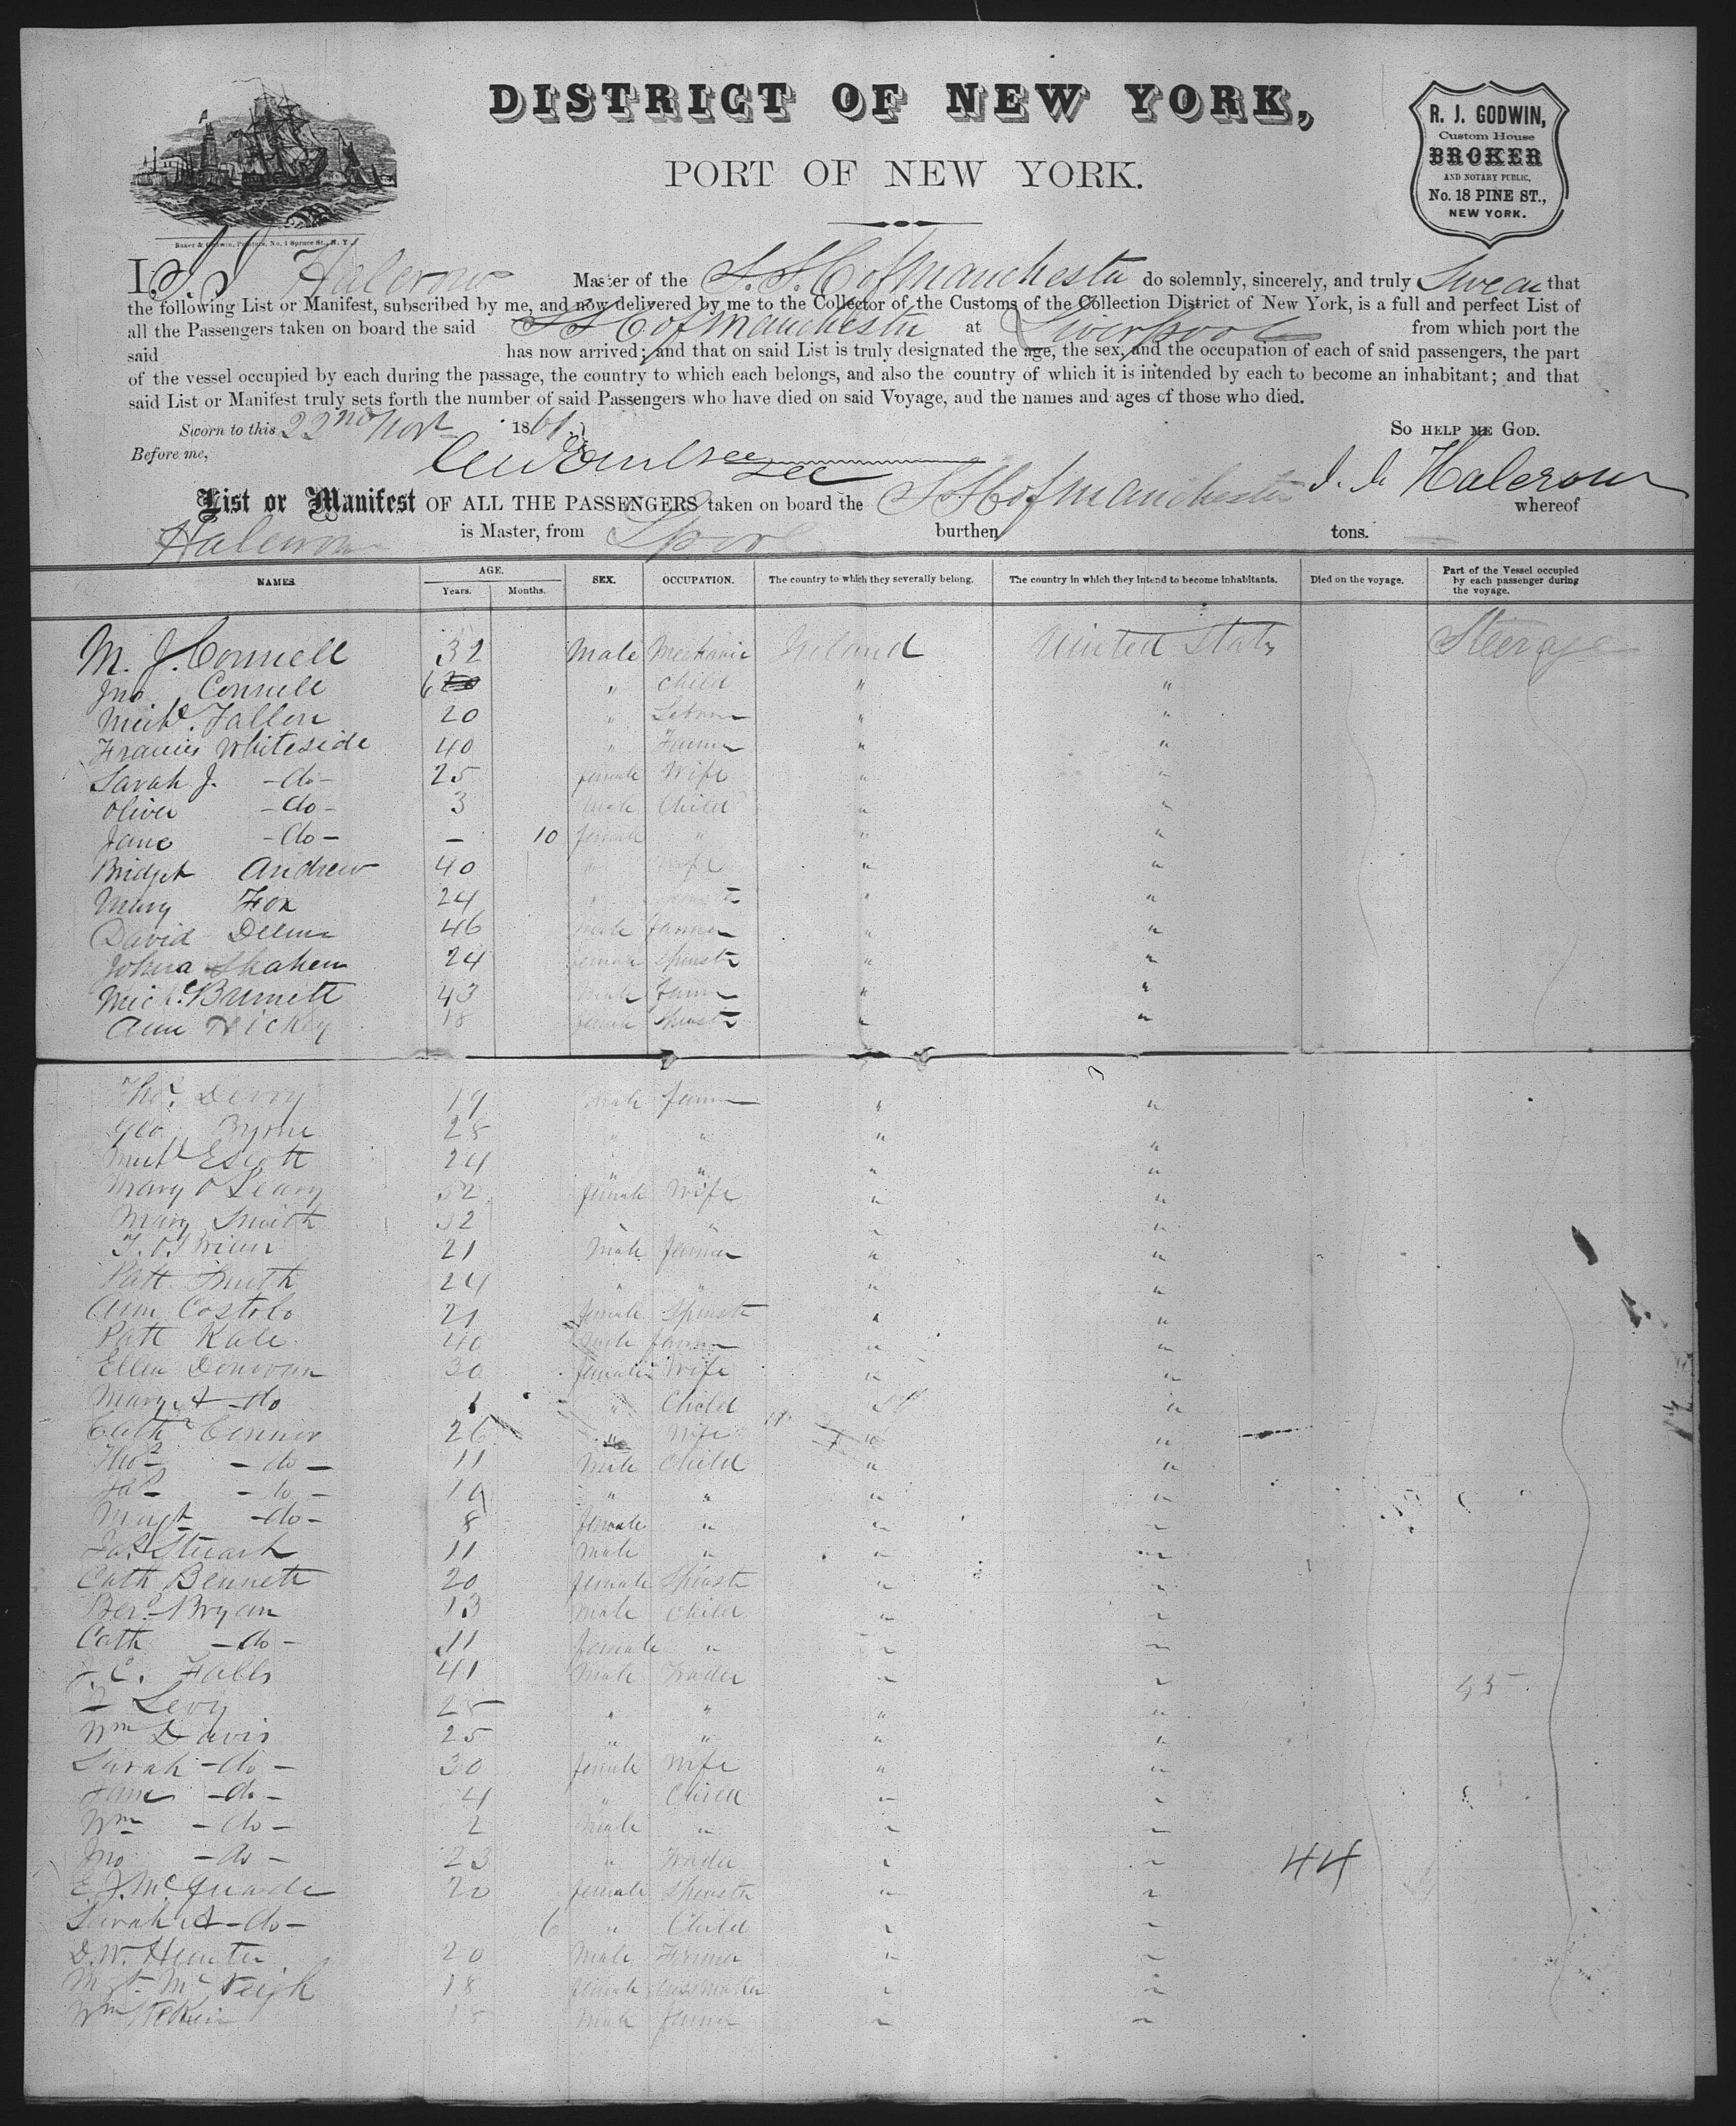 DISTRICT OF NEW YORK,
PORT OF NEW YORK.
R. J. GODWIN,
Custom House
BROKER
AND NOTARY PUBLIC,
No. 18 PINE ST.,
NEW YORK.
Baker & Godwin, Printers, No. 1 Spruce St., N. Y.
I, Halcrow Master of the S. S. C of Manchester do solemnly, sincerely, and truly Swear that
the following List or Manifest, subscribed by me, and now delivered by me to the Collector of the Customs of the Collection District of New York, is a full and perfect List of
all the Passengers taken on board the said S S C of Manchester at Liverpool from which port the
said has now arrived; and that on said List is truly designated the age, the sex, and the occupation of each of said passengers, the part
of the vessel occupied by each during the passage, the country to which each belongs, and also the country of which it is intended by each to become an inhabitant; and that
said List or Manifest truly sets forth the number of said Passengers who have died on said Voyage, and the names and ages of those who died.
Sworn to this 22nd Novr 1861 So help me God.
Before me,
Halcrow
List or Manifest OF ALL THE PASSENGERS taken on board the S S C of Manchester whereof
Halcrow is Master, from Lpool burthen tons.
NAMES. AGE. Years. Months. SEX. OCCUPATION. The country to which they severally belong. The country in which they intend to become inhabitants. Died on the voyage. Part of the Vessel occupied by each passenger during the voyage.
M. J. Connell 32 Male Mechanic Ireland United States Steerage
Jno Connell 6 " Child " "
Michl. Fallon 20 " " "
Francis Whiteside 40 " Farmer " "
Sarah J. -do- 25 female Wife " "
Oliver -do- 3 Male Child " "
Jane -do- - 10 female " " "
Bridget Andrew 40 " Wife " "
Mary Fox 24 " Spinstr " "
David 46 Male Farmer " "
24 female Spinstr " "
Michl. Burnett 43 Male Farmer " "
Ann Hickey 18 female Spinstr " "
Thos. Derry 19 Male farmer " "
Geo Byrne 25 " " " "
Michl 24 " " " "
Mary O Leary 52 female Wife " "
Mary Smith 32 " " " "
T. O'Brien 21 Male farmer " "
Patt Smith 24 " " " "
Ann Costolo 21 female Spinstr " "
Patt Kale 40 Male farmer " "
Ellen Donovan 30 female Wife " "
Margt -do 1 " Child " "
Cath Connor 26 " Wife " "
Thos - do - 11 Male Child " "
Jas - do - 10 " " " "
Margt -do- 8 female " " "
Jas. Stuart 11 male " " "
Cath Bennett 20 female Spinstr " "
Bryan 13 Male Child " "
Cath -do- 11 female " " "
J. C. Falls 41 Male Trader " "
Levy 25 " " " "
Wm Davis 25 " " " "
Sarah -do- 30 female Wife " "
Jane -do- 4 " Child " "
Wm -do- 2 Male " " "
Jno -do- 23 " Trader " " 44
E. J. McQuade 20 female Spinstr " "
Sarah A -do- 6 " Child " "
D. W. Hunter 20 Male Farmer " "
Mgt. McVeigh 18 female dressmaker " "
Wm 18 Male farmer " "